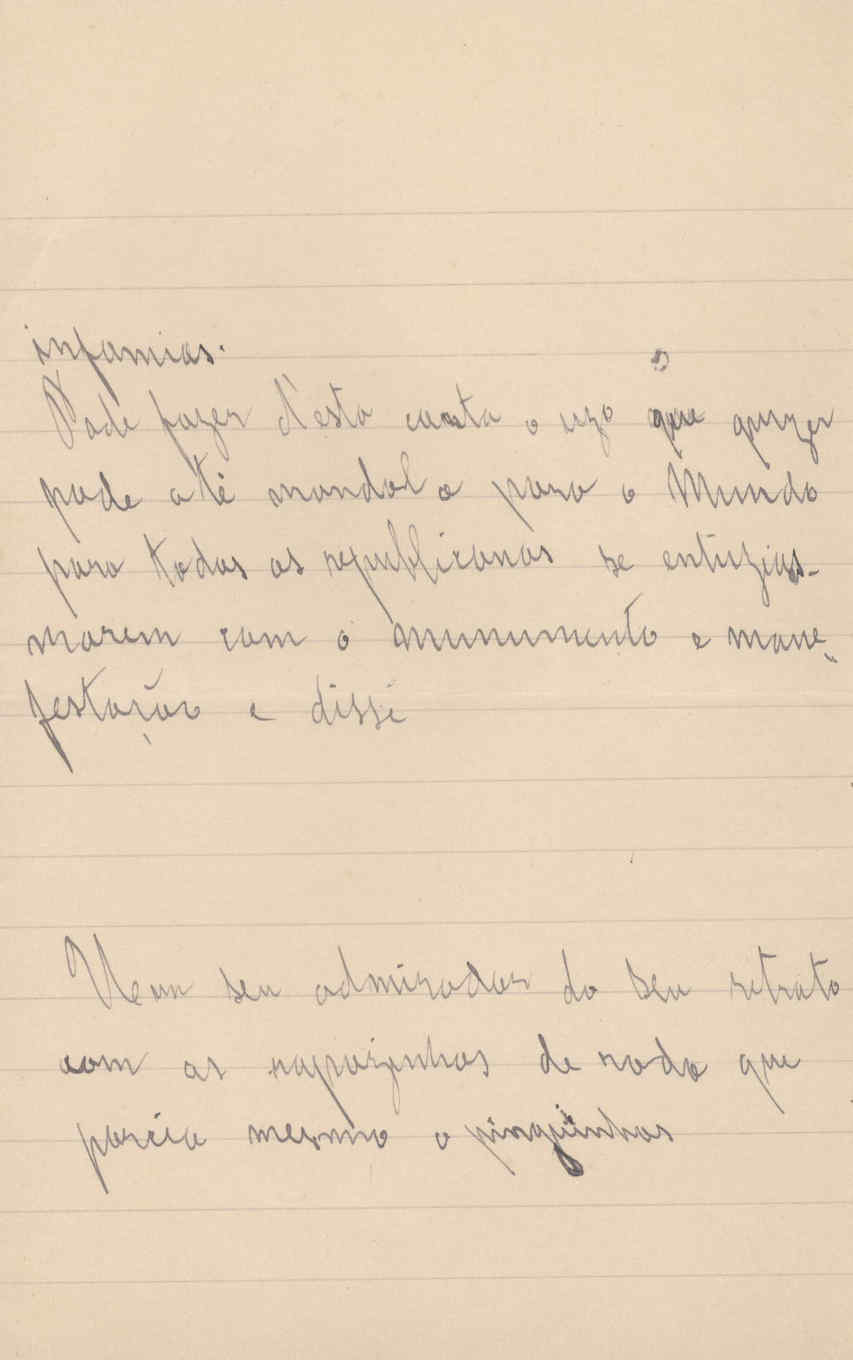 infamias.
Pode fazer d'esta carta o uzo que quizer
pode até mandal a para o Mundo
para todos os republicanos se entuzias-
marem com o munumento e mane-
festação e disse
Um seu admirador do seu retrato
com os rapazinhos de roda que
parcia mesmo o pingüinhas